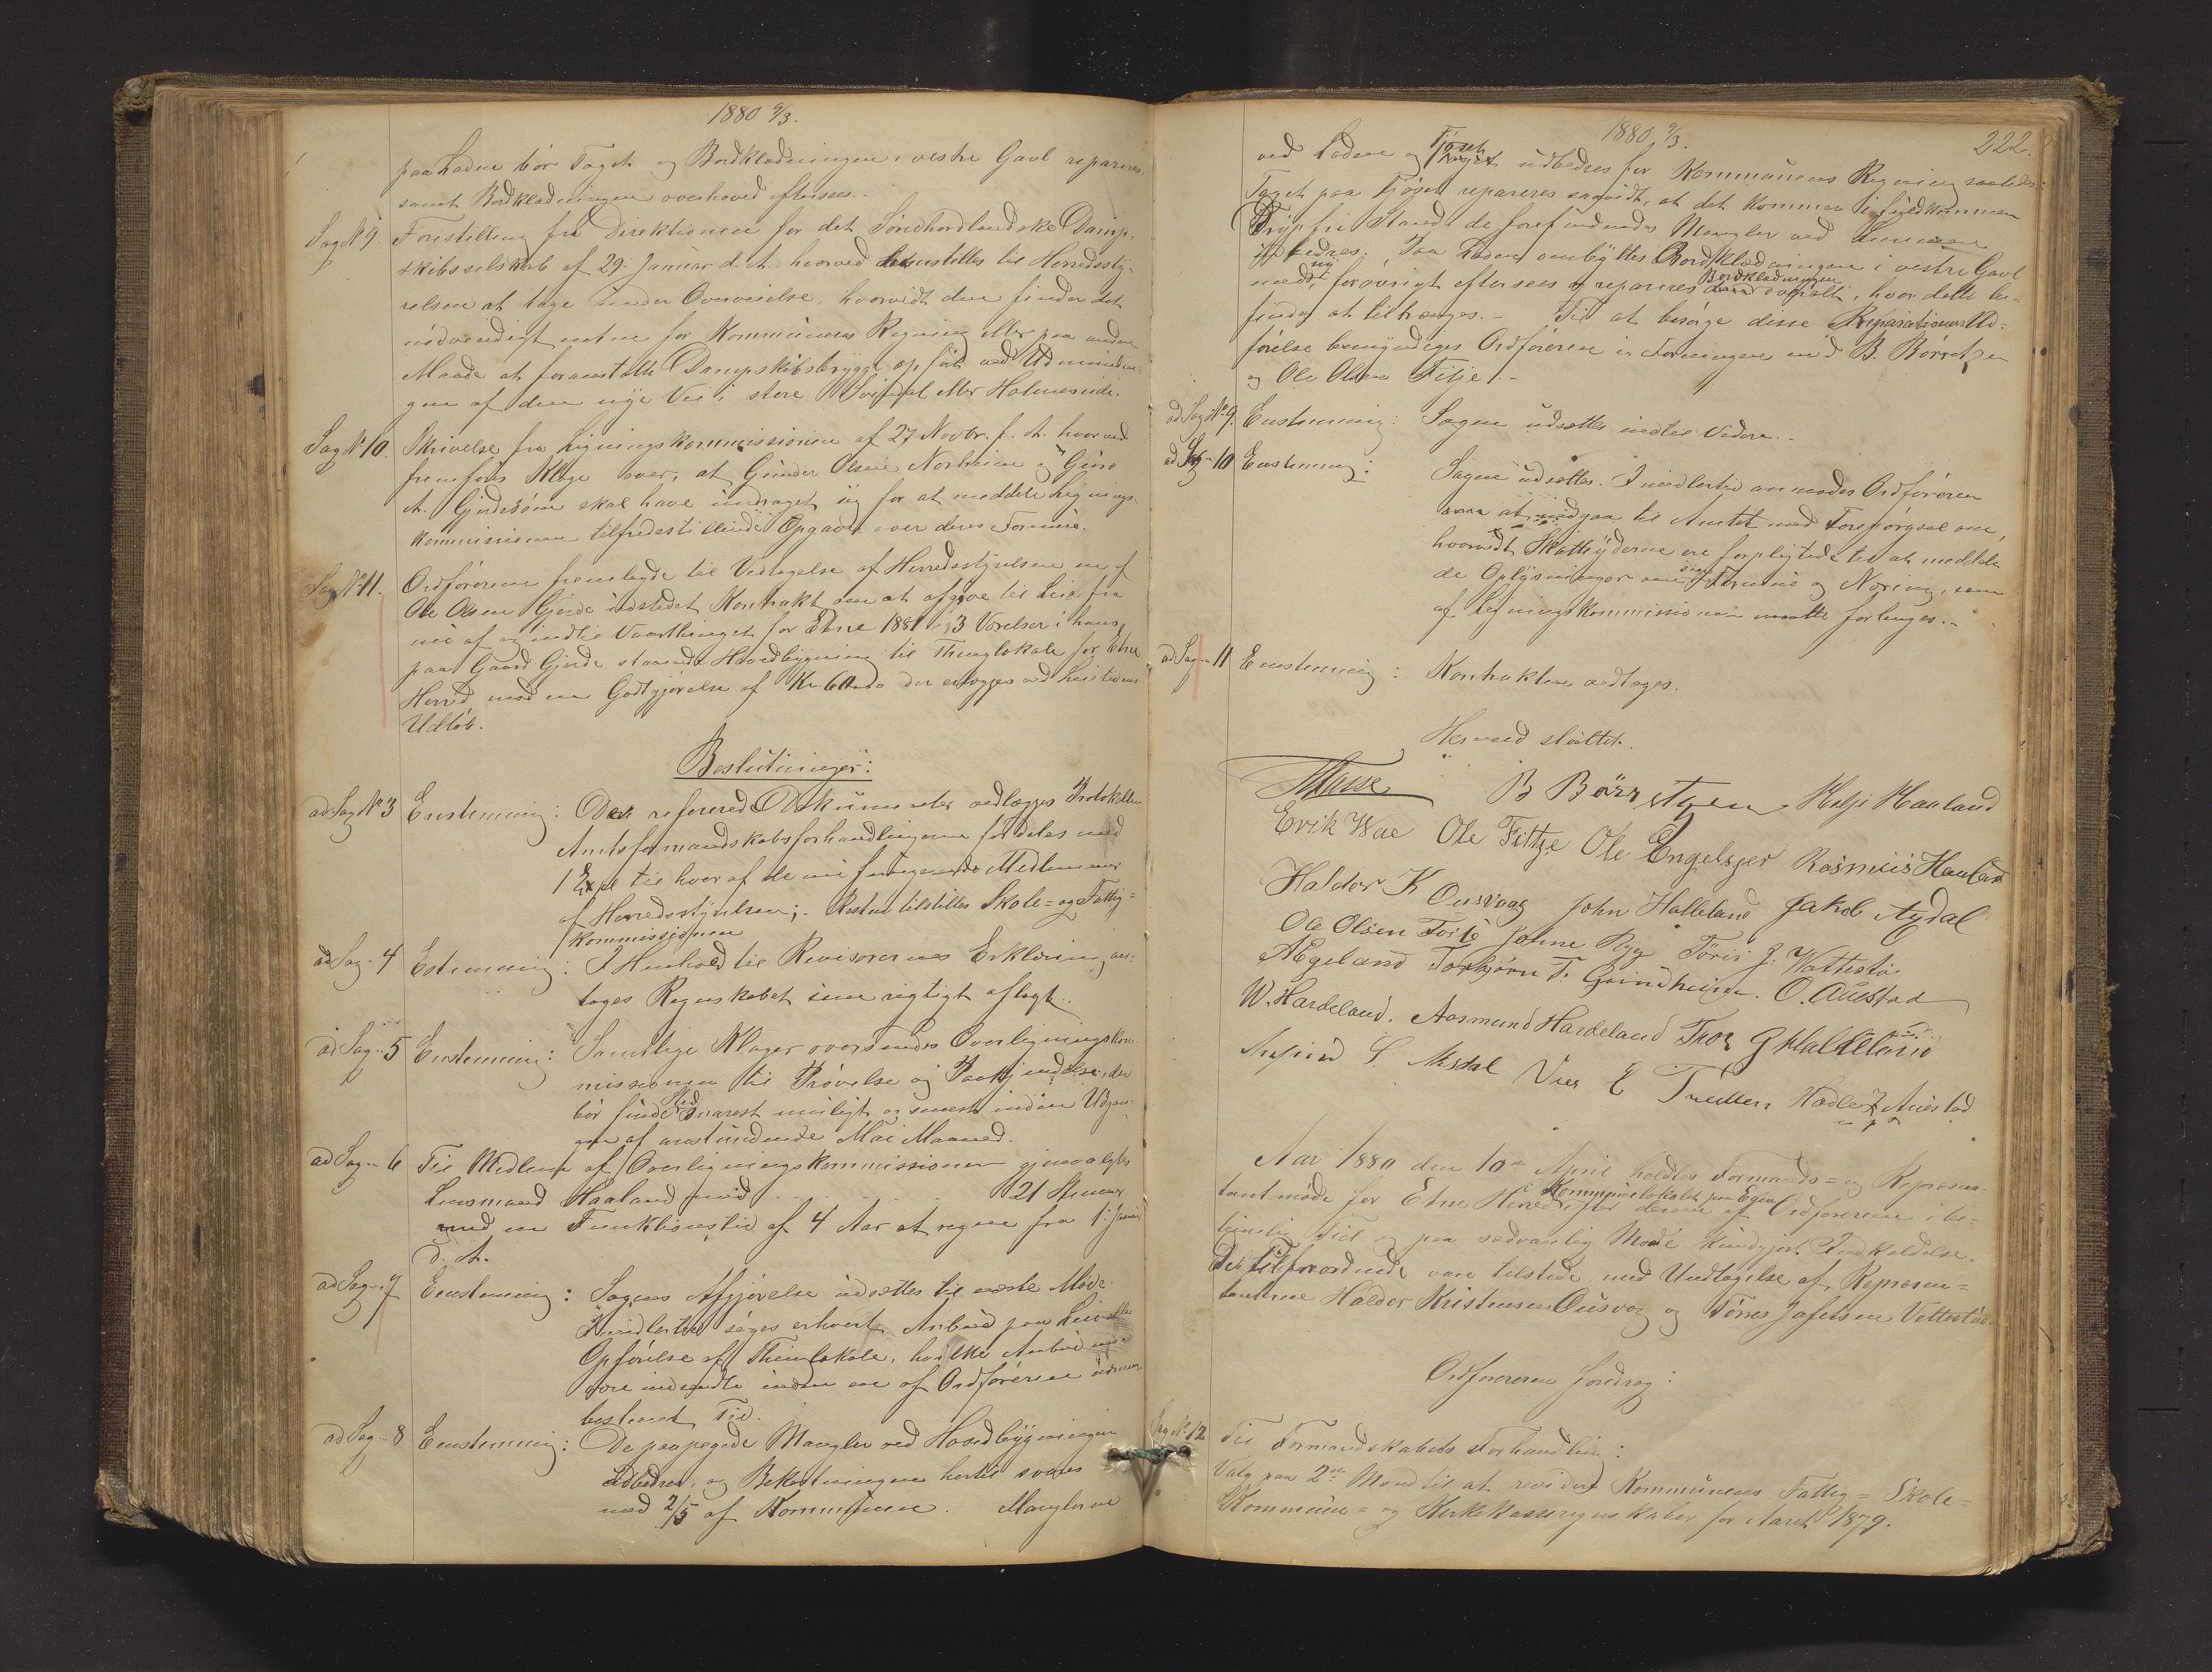 1880 9/3.
paa Laden bör Taget og Bordklædningen i vestre Gavl repareres,
samt Bordklædningen overhoved eftersees.
Sag No 9. Forestilling fra Direktionen for det Söndhordlandske Damp-
skibsselskab af 29. Januar d. A. hvorved henstilles til Herredssty-
relsen at tage under Overveielse, hvorvidt den finder det
nödvendigt enten for Kommunens Regning eller paa anden
Maade at foranstalte Dampskibsbrygge opfört ved Udmundin-
gen af den nye Vei i store eller Holmesnde.
Sag No 10. Skrivelse fra Ligningskommissionen af 27 Novbr. f. A. hvorved
fremföres Klage over, at Gunder Olsen Norheim og
A. Gjerde som skal have undraget sig for at meddele Lignings-
kommissionen tilfredsstillende Opgave over deres Formue.
Sag No 11. Ordföreren fremlagde til Vedtagelse af Herredsstyrelsen en af
Ole Olsen Gjerde udstedet Kontrakt om at afgive til Leie fra
nu af og indtil Vaarthinget for Etne 1881 3 Værelser i hans
paa Gaard Gjerde staaende Hovedbygning til Thinglokale for Etne
Herred mod en Godtgjörelse af Kr. der erlægges ved Leietidens
Udlöb.
Beslutninger:
ad Sag No 3 Enstemmig: De refererede Dokumenter vedlægges Protokollen
Amtsformandskabsforhandlingerne fordeles med
1 Expl til hver af de nu fungerende Medlemmer
af Herredsstyrelsen; - Resten tilstilles Skole= og Fattig=
kommissionen
ad Sag - 4 Estemmig: I Henhold til Revisorernes Erklæring an-
tages Regnskabet som rigtigt aflagt.
ad Sag - 5 Enstemmig: Samtlige Klager oversendes Overligningskom-
missionen til Prövelse og Paakjendelse, der
bör finde Sted snarest muligt og senest inden Udgan-
gen af anstundende Mai Maaned.
ad Sag - 6 Til Medlem af Overligningskommissionen gjenvalgtes
Lensmand Haaland med 21 Stemmer
med en Funktionstid af 4 Aar at regne fra 1. Januar
d. A.
ad Sag - 7 Enstemmig: Sagens Afgjörelse udsættes til næste Möde.
Imidlertid söges erhvert Anbud paa Leie eller
Opförelse af Thinglokale, hvilke Anbud maa
være indsendte inden en af Ordföreren nærmere
bestemt Tid.
ad Sag - 8 Enstemmig: De paapegede Mangler ved Hovedbygningen
udbedres, og Bekostningen hertil svares
med 2/5 af Kommunen. Manglerne
1880 9/3. 222.
ved Laden og Fjöset udbedres for Kommunens Regning saaledes:
Taget paa Fjöset repareres saavidt, at det kommer i fuldkommen
Drypfri Stand, de forefindende Mangler ved
udbedres. Paa Laden ombyttes Bordklædningen i vestre Gavl
med ny, forövrigt eftersees og repareres Bordklædningen overalt, hvor dette be-
findes at tiltrænges. - Til at besörge disse Reparationers Ud-
förelse bemyndiges Ordföreren i Foreningen med B. Börretzen
og Ole Olsen Fitje. -
ad Sag No 9. Enstemmig: Sagen udsættes indtil Videre. -
ad Sag - 10 Enstemmig: Sagen udsættes. Imidlertid anmodes Ordföreren
at indgaa til Amtet med Forespörgsel om,
hvorvidt Skatteyderne ere forpligtede til at meddele
de Oplysninger om sin Formue og Næring, som
af Ligningskommissionen maatte forlanges. -
ad Sag - 11 Enstemmig: Kontrakten vedtages.
Hermed sluttet.
B Börretzen Helje Haaland
Erik Wae Ole Fittje Ole Engelsgjer Rasmus Haaland
Haldor K Ousvaag John Halleland Jakob Aydal
Ole Olsen Johne Rygg Töris J. Wattestö
AEgeland Torbjörn T. Grindheim. O. Austad
W. Hardeland. Aasmund Hardeland Thor G Halleland
S. Misdal E Tveden Hadle Austad
Aar 1880 den 10de April holdtes Formands= og Repræsen-
tantmöde for Etne Herred i Kommunelokalet paa efter derom af Ordföreren i be-
timelig Tid og paa sædvanlig Maade kundgjort Indkaldelse.
De tilforordnede vare tilstede med Undtagelse af Repræsen=
tanterne Haldor Kristensen Ousvog og Törres Jafetsen Vettestö.
Ordföreren foredrog:
Sag No 12 Til Formandskabets Forhandling:
Valg paa 2de Mænd til at revidere Kommunens Fattig= Skole=
Kommune= og Kirkekasseregnskaber for Aaret 1879.